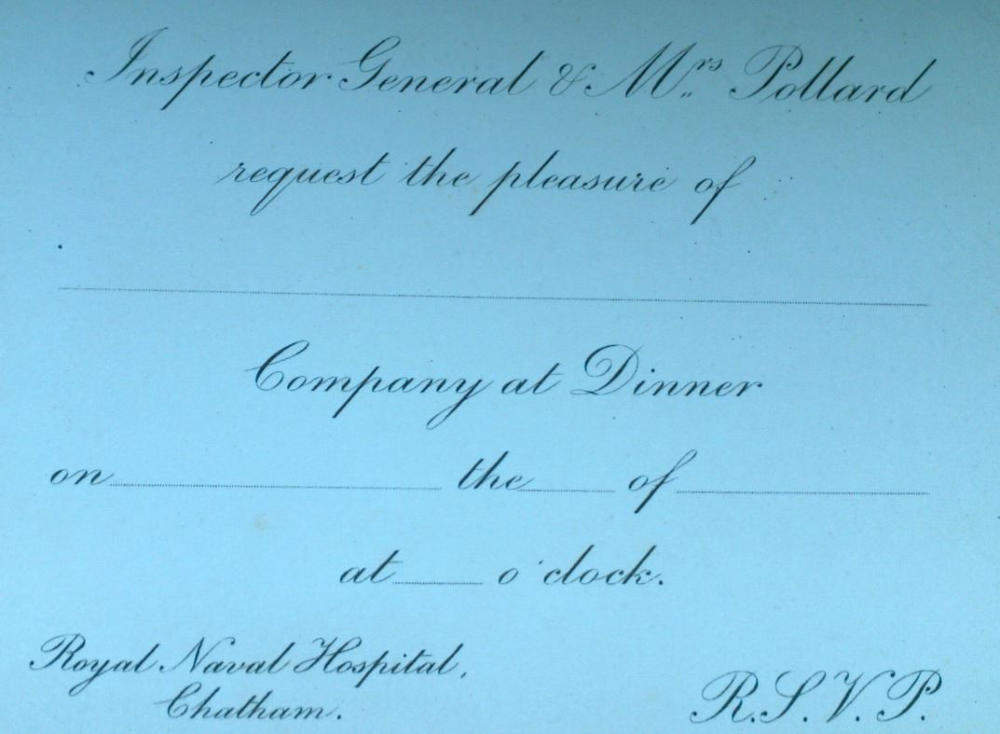 Inspector General & Mrs Pollard
request the pleasure of
Company at Dinner
on the of
at o'clock.
Royal Naval Hospital,
Chatham.
R.S.V.P.